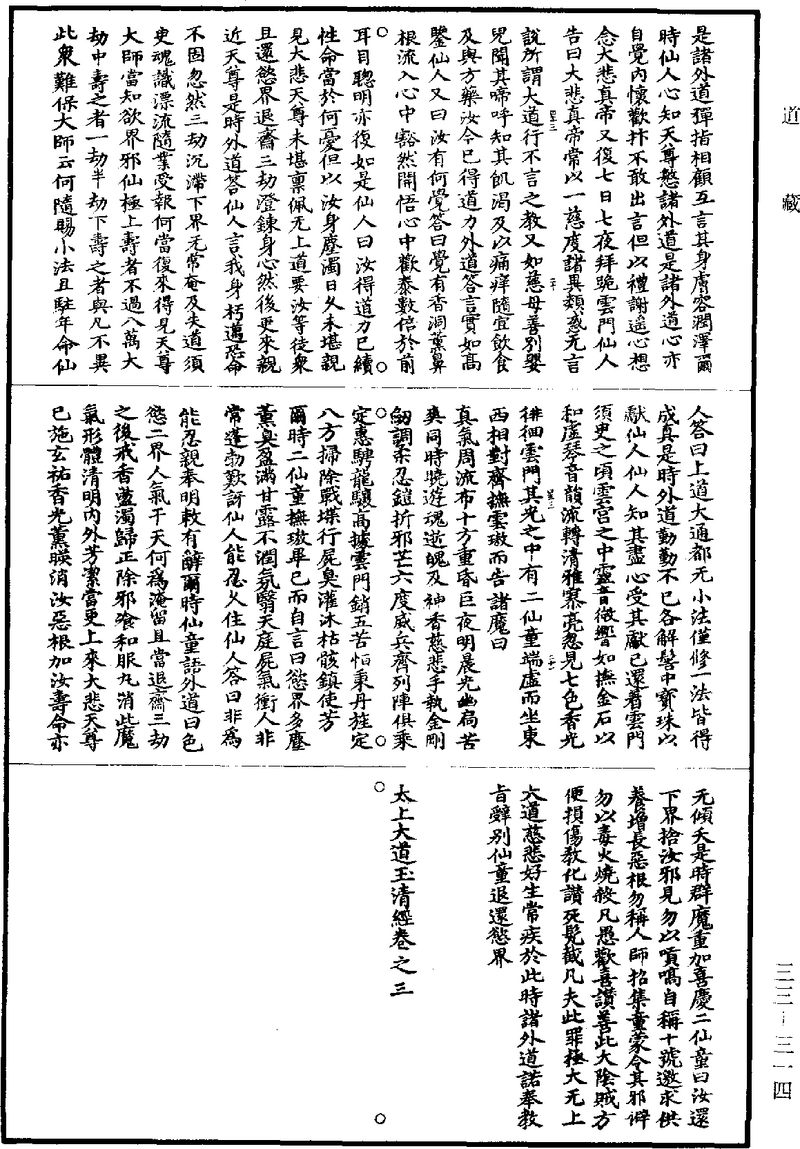 道藏
是諸外道彈指相顧互言其身膚容潤澤爾
時仙人心知天尊慜諸外道是諸外道心亦
自覺內懷歡抃不敢出言但以禮謝遥心想
念大悲真帝又復七日七夜拜跪雲門仙人
告曰大悲真帝常以一慈度諸異類惑无言
說所謂大道行不言之教又如慈母善別嬰
兒聞其啼呼知其飢渴及以痛痒隨宜飲食
及與方藥汝今已得道力外道答言實如高
鑒仙人又曰汝有何覺答曰覺有香洞薰鼻
根流入心中豁然開悟心中歡泰數倍於前
耳目聰明亦復如是仙人曰汝得道力已續
性命當於何憂但以汝身塵濁日久未堪親
見大悲天尊未堪稟佩无上道要汝等徒衆
且還慾界退齋三劫澄鍊身心然後更來親
近天尊是時外道答仙人言我身朽邁恐命
不固忽然三劫沉滯下界无常奄及失道須
㬰魂識漂流隨業受報何當復來得見天尊
大師當知欲界邪仙極上壽者不過八萬大
劫中壽之者一劫半劫下壽之者與凡不異
此衆難保大師云何隨賜小法且駐年命仙
人答曰上道大通都无小法僅修一法皆得
成真是時外道勤勤不已各解髻中寶珠以
獻仙人仙人知其盡心受其獻已還著雲門
須㬰之頃雲宮之中靈音微響如撫金石以
和虛琴音韻流轉清雅寥亮忽見七色香光
徘徊雲門其光之中有二仙童端虛而坐東
西相對齊撫雲璈而告諸魔曰
真氣周流布十方重昏巨夜明晨光幽扃苦
爽同時曉遊魂逝魄及神香慈悲手執金剛
劒調柔忍鎧折邪芒六度威兵齊列陣俱乘
定惠騁龍驤高據雲門銷五苦怕秉丹旌定
八方掃除戰堞行屍臭灌沐枯骸鎮使芳
爾時二仙童撫璈畢已而自言曰慾界多塵
薰臭盈滿甘露不潤氛翳天庭屍氣衝人非
常蓬勃歎訝仙人能忍久住仙人答曰非爲
能忍親奉明敕有辭爾時仙童語外道曰色
慾二界人氣干天何爲淹留且當退齋三劫
之後戒香蕩濁歸正除邪飡和服丸消此魔
氣形體清明內外芳潔當更上來大悲天尊
已施玄祐香光薰暎消汝惡根加汝壽命亦
无傾夭是時群魔重加喜慶二仙童曰汝還
下界捨汝邪見勿以嗔嗃自稱十號邀求供
養增長惡根勿稱人師招集童蒙令其邪僻
勿以毒火燒殺凡愚歡喜讃善此大陰賊方
便損傷教化讃死髡截凡夫此罪極大无上
大道慈悲好生常疾於此時諸外道諾奉教
旨辭別仙童退還慾界
太上大道玉清經卷之三
三三—三一四